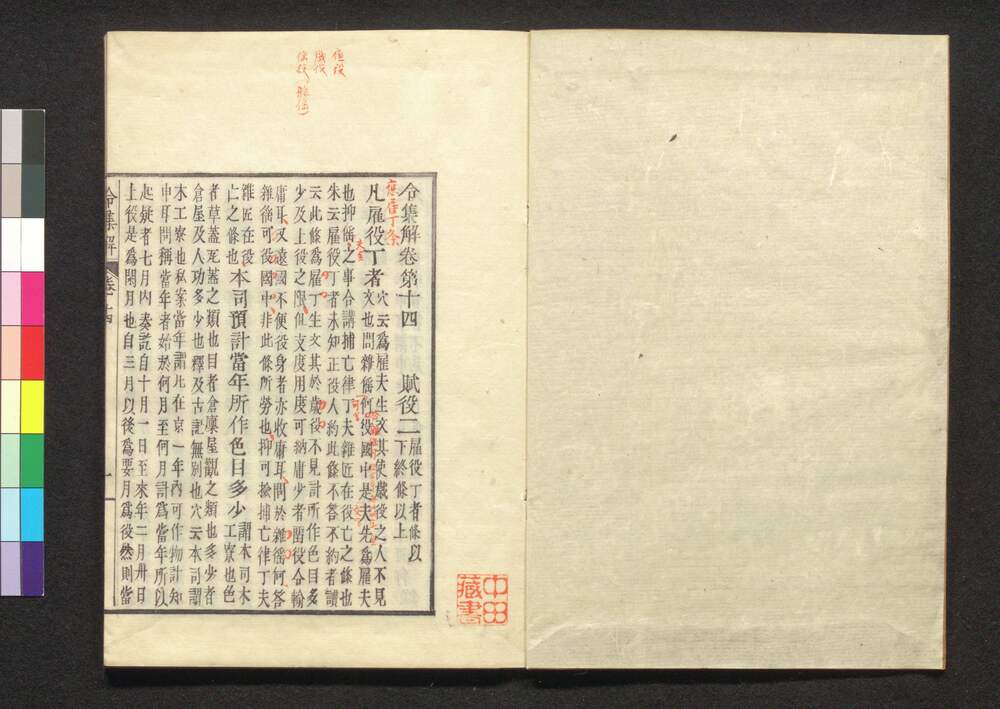 雇役
歳役
徭役(雜徭)
應役丁条
令集解卷第十四
賦役二
雇役丁者條以
下終條以上
凡雇役丁者
穴云爲雇夫生文其使歳役之人不見
文也問雜徭何役國中是夫先爲雇夫
也抑徭之事合講捕亡律丁夫雜匠在役亡之條也
朱云雇役丁者未知正役人約此條不答不約者讃
云此條爲雇丁生文其於歳役不見計所作色目多
少及上役之限但支度用度可納庸少者酌役令輸
庸耳又遠國不便役身者亦收庸耳問於雜徭何答
雜徭可役國中非此條所勞也抑可捡捕亡律丁夫
雜匠在役
亡之條也
本司預計當年所作色目多少
謂本司木
工寮也色
者草蓋瓦蓋之類也目者倉廩屋觀之類也多少者
倉屋及人功多少也釋及古記無別也穴云本司謂
木工寮也私案當年謂凡在京一年內可作物計知
申耳問稱當年者始於何月至何月計爲當年所以
起疑者七月內奏訖自十月一日至來年二月卅日
上役是爲閑月也自三月以後爲要月爲役然則當
令集解
卷十四
一
中田
藏書